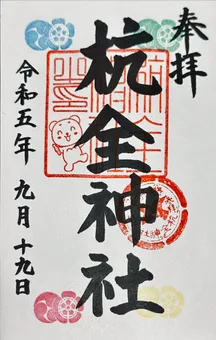 奉拝
杭全神社
令和五年 九月 十九日